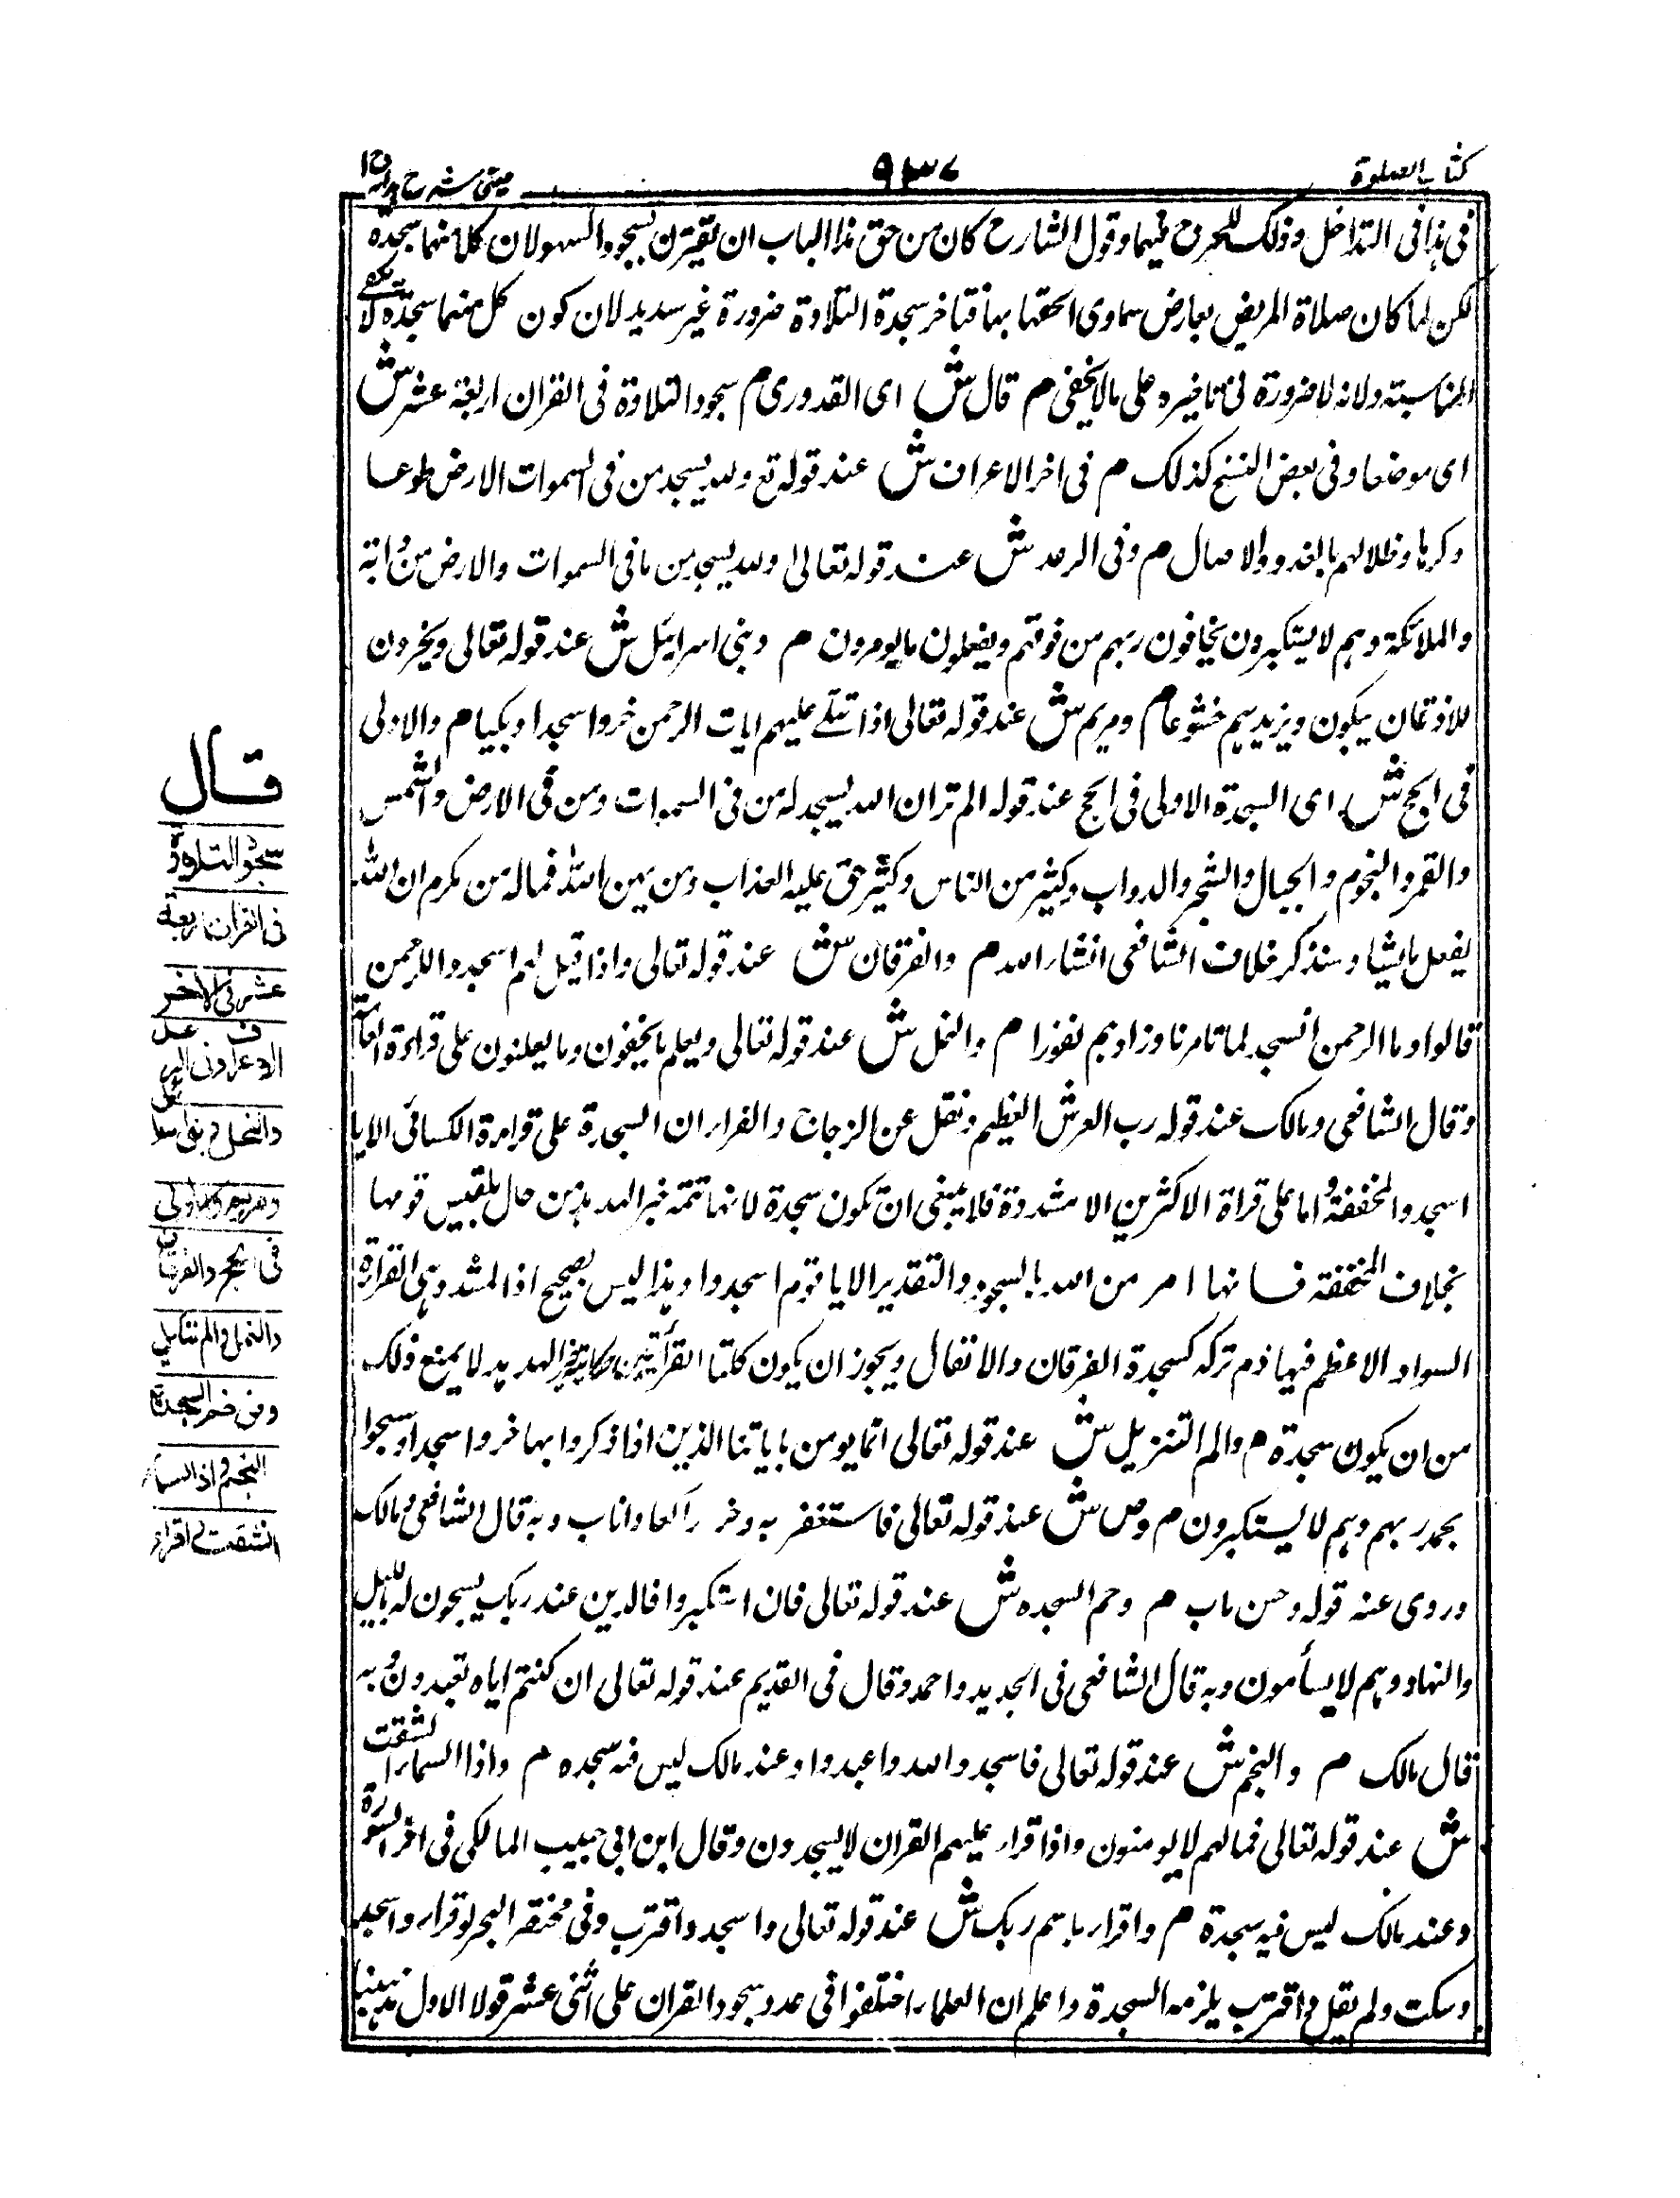 كتاب الصلوة
٩٣٧
عينى شرح هدايه ج ١
فى هذا فى التداخل وذلك للحرج فيهما وقول الشارح كان من حق هذا الباب ان يقترن بسجود السهو لان كلا منهما سجدة
لكن لما كان صلاة المريض بعارض سماوى الحقها بها فتاخر سجدة التلاوة ضرورة غير سديد لان كون كل منهما سجدة لا تكفى
المناسبة ولانه لا ضرورة فى تاخيره على ما لا يخفى م قال ش اى القدورى م سجود التلاوة فى القران اربعة عشر ش
اى موضعا وفى بعض النسخ كذلك م فى اخر الاعراف ش عند قوله تع ولله يسجد من فى السموات الارض طوعا
وكرها وظلالهم بالغدو والاصال م وفى الرعد ش عند قوله تعالى ولله يسجد من ما فى السموات والارض من دابة
والملائكة وهم لا يستكبرون يخافون ربهم من فوقهم ويفعلون ما يومرون م وبنى اسرائيل ش عند قوله تعالى ويخرون
للاذقان يبكون ويزيدهم خشوعا م ومريم ش عند قوله تعالى اذا تتلى عليهم ايات الرحمن خروا سجدا وبكيا م والاولى
فى الحج ش اى السجدة الاولى فى الحج عند قوله الم تر ان الله يسجد له من فى السموات ومن فى الارض والشمس
والقمر والنجوم والجبال والشجر والدواب وكثير من الناس وكثير حق عليه العذاب ومن يهن الله فما له من مكرم ان الله
يفعل ما يشا وسنذكر خلاف الشافعى انشاء الله م والفرقان ش عند قوله تعالى واذا قيل لهم اسجدوا للرحمن
قالوا وما الرحمن انسجد لما تامرنا وزادهم نفورا م والنمل ش عند قوله تعالى ويعلم ما يخفون وما يعلنون على قراءة العامة
وقال الشافعى ومالك عند قوله رب العرش العظيم ونقل عن الزجاج والفراء ان السجدة على قراءة الكسائى الا يا
اسجدوا المخففة واما على قراة الاكثرين الا مشددة فلا ينبغى ان تكون سجدة لانها تتمة خبر الهدهد عن حال بلقيس قومها
بخلاف المخففة فانها امر من الله بالسجود والتقدير الا يا قوم اسجدوا وهذا ليس بصحيح اذ المشددة هى القراءة
السواد الاعظم فيها ذم تركه كسجدة الفرقان والانفال ويجوز ان يكون كلتا القرأتين حكاية خبر الهدهد لا يمنع ذلك
من ان يكون سجدة م والم التنزيل ش عند قوله تعالى انما يومن باياتنا الذين اذا ذكروا بها خروا سجدا وسبحوا
بحمد ربهم وهم لا يستكبرون م وص ش عند قوله تعالى فاستغفر به وخر راكعا واناب وبه قال الشافعى ومالك
وروى عنه قوله وحسن ماب م وحم السجده ش عند قوله تعالى فان استكبروا فالذين عند ربك يسبحون له بالليل
والنهار وهم لا يسأمون وبه قال الشافعى فى الجديد واحمد وقال فى القديم عند قوله تعالى ان كنتم اياه تعبدون وبه
قال مالك م والنجم ش عند قوله تعالى فاسجدوا لله واعبدوا وعند مالك ليس فيه سجده م واذا السماء انشقت
ش عند قوله تعالى فما لهم لا يومنون واذا قراء عليهم القران لا يسجدون وقال ابن ابى حبيب المالكى فى اخر السورة
وعند مالك ليس فيه سجدة م واقراء باسم ربك ش عند قوله تعالى واسجد واقترب وفى مختصر البحر لو قراء واسجد
وسكت ولم يقل واقترب يلزمه السجدة واعلم ان العلماء اختلفوا فى عدد سجود القران على اثنى عشر قولا الاول مذهبنا
قال
سجود التلاوة
فى القران اربعة
عشر فى الاخر
الاعراف وفى الرعد
والنحل وبنى اسرائيل
ومريم والاولى
فى الحج والفرقان
والنمل والم تنزيل
وص وحم السجدة
النجم واذا السماء
انشقت واقراء